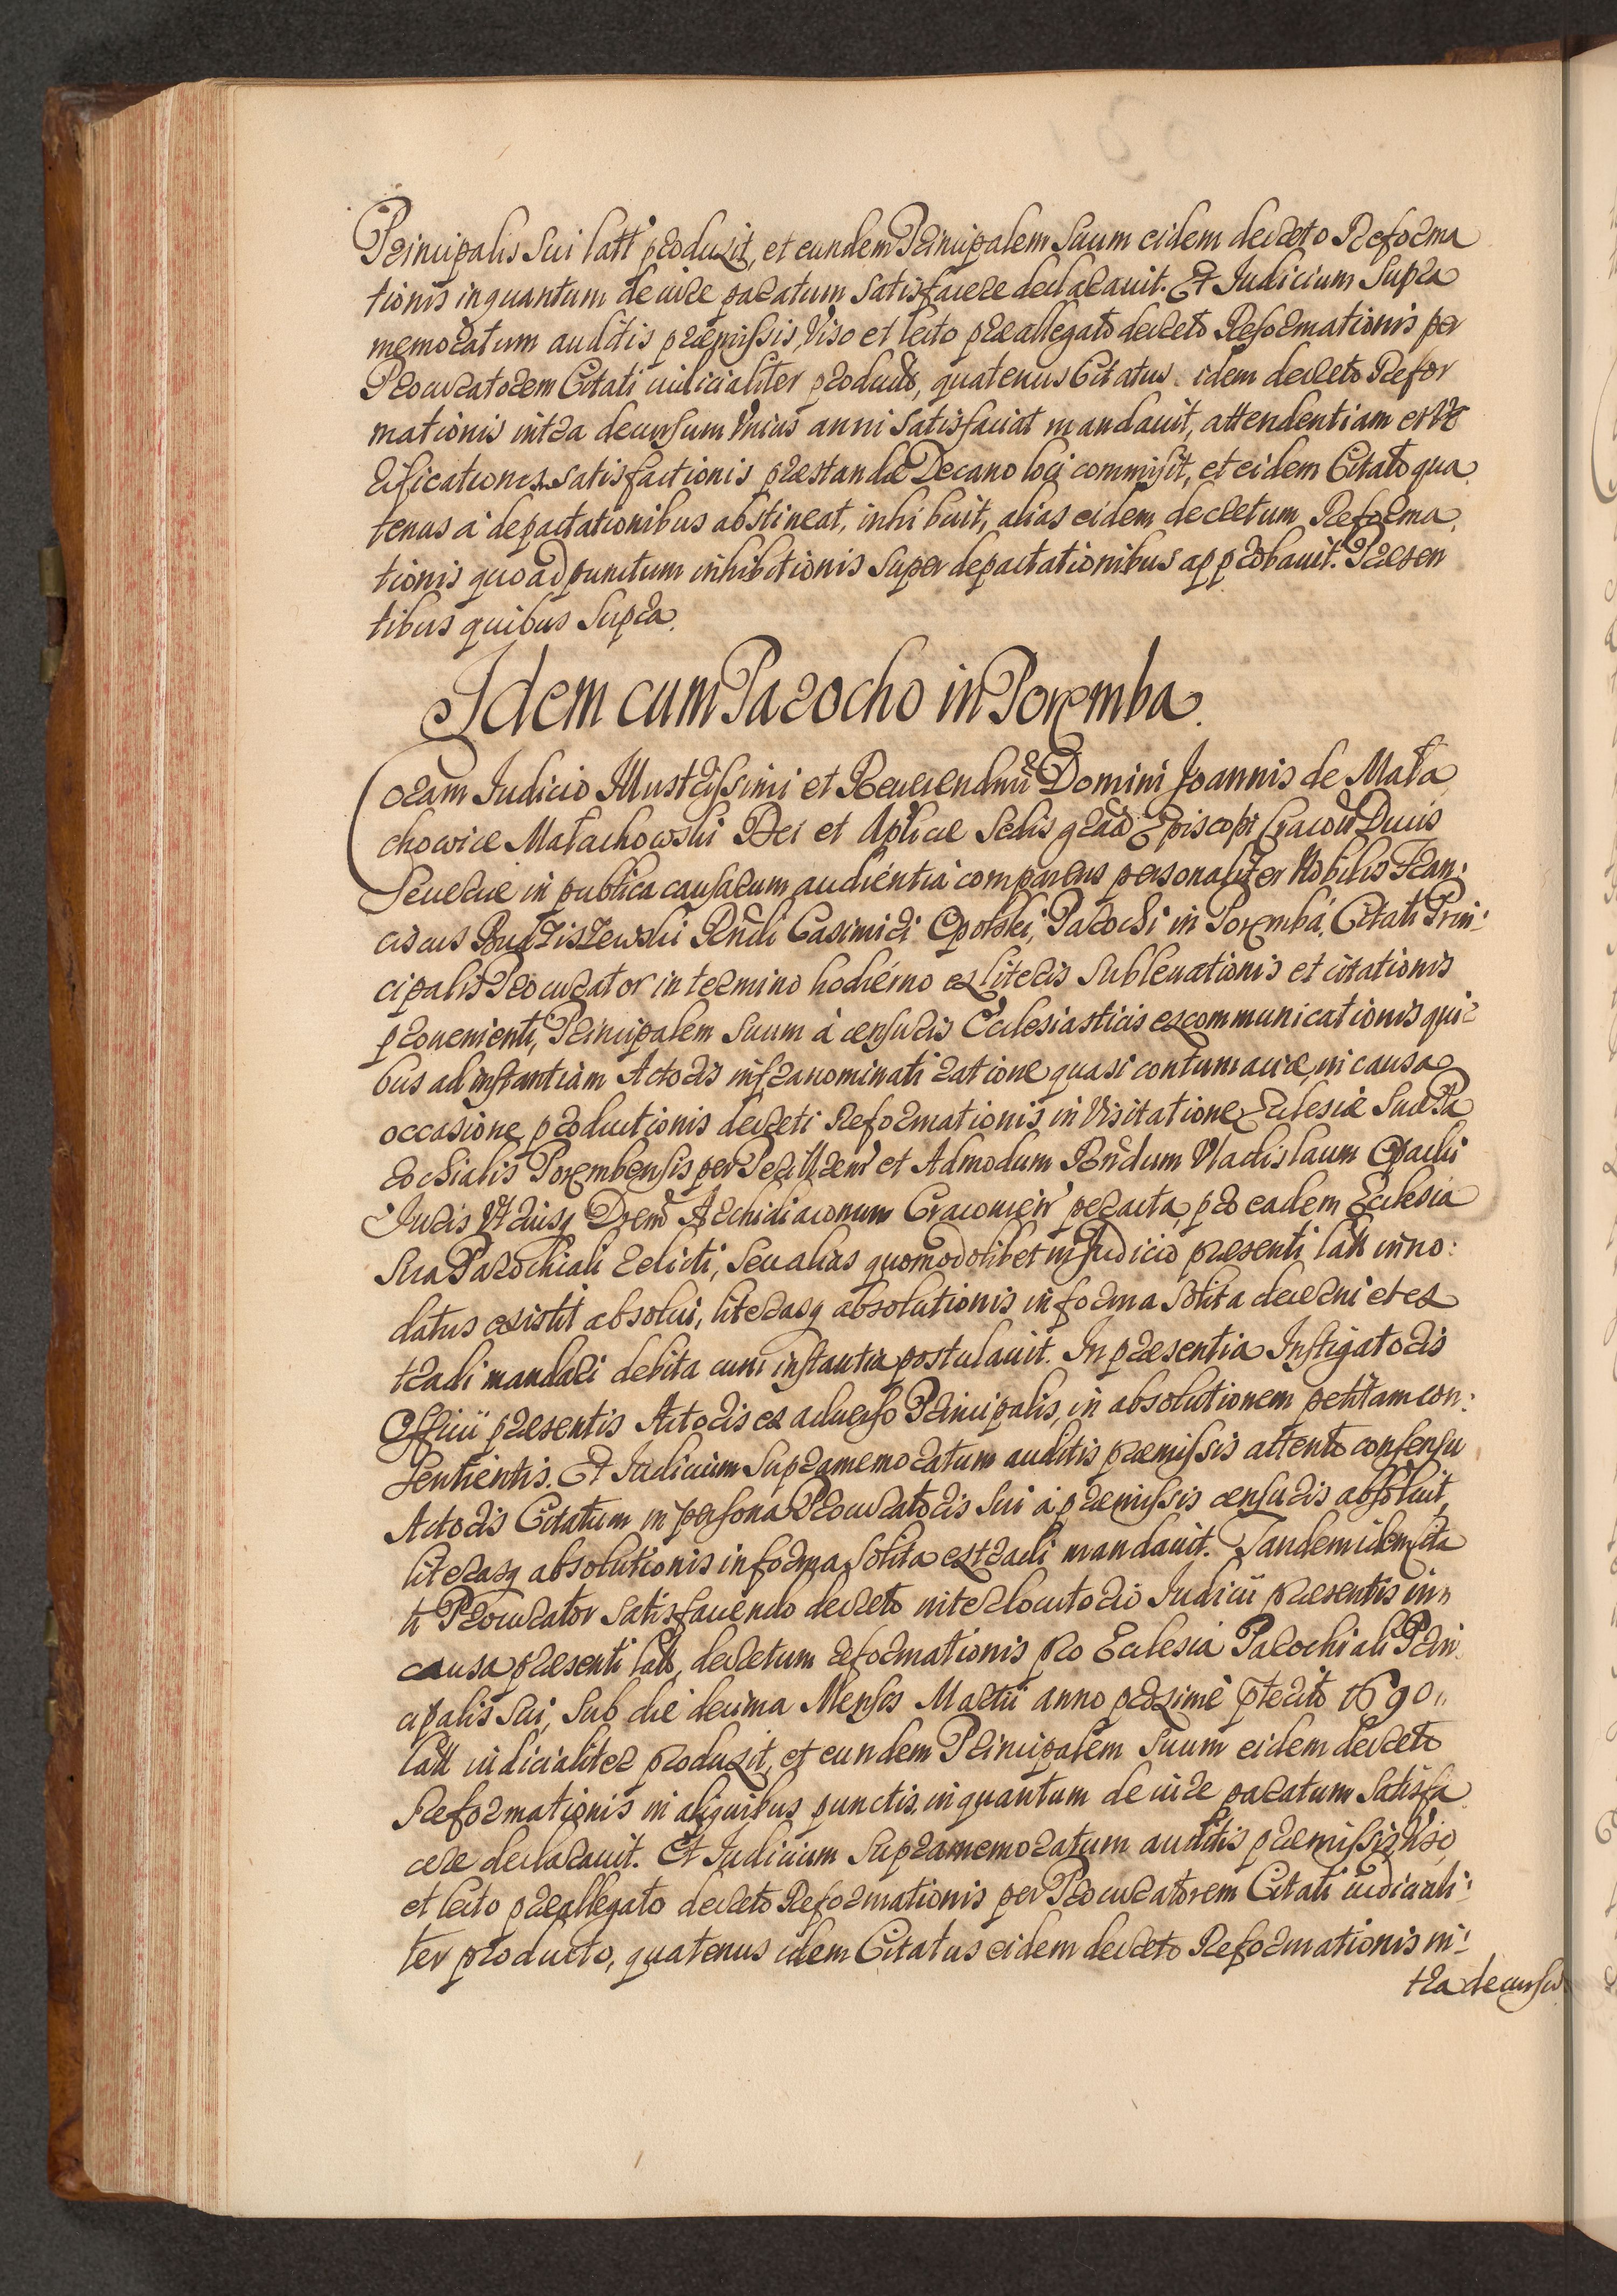 Principalis Sui latt produxit, et eundem Principalem Suum eidem decreto Reforma
tionis inquantum de iure paratum Satisfacere declarauit. Et Iudicium Supra
memoratum auditis præmissis, Viso et lecto præallegato decreto Reformationis per
Procuratorem Citati iudicialiter producto, quatenus Citatus idem decreto Refor
mationis intra decursum Vnius anni Satisfaciat mandauit, attendentiam et Ve
rificationes Satisfactionis præstandæ Decano loci commisit, et eidem Citato qua
tenus a depactationibus abstineat, inhibuit, alias eidem decretum Reforma
tionis quoad punctum inhibitionis Super depactationibus approbauit. Præsen
tibus quibus Supra.
Idem cum Parocho in Poremba.
Coram Iudicio Illustrissimi et Reuerendmi Domini Joannis de Mała
chowice Małachowski Dei et Aplicæ Sedis grao Episcopi Cracoun Ducis
Seueriæ in publica causarum audientia comparens personaliter Nobilis Fran:
ciscus Budziszewski Rndi Casimiri Opolski, Parochi in Poremba, Citati Prin:
cipalis Procurator in termino hodierno ex literis Subleuationis et citationis
proueniente, Principalem Suum à censuris Ecclesiasticis excommunicationis qui:
bus ad instantiam Actoris infranominati ratione quasi contumaciæ, in causa
occasione productionis decreti Reformationis in Visitatione Ecclesiæ Suæ Pa
rochialis Porembensis per Perillrem et Admodum Rndum Vladislaum Opacki
Iuris Vtriusq Drem Archidiaconum Cracouien peracta, pro eadem Ecclesia
Sua Parochiali relicti, Seu alias quomodolibet in Iudicio præsenti latt inno:
datus existit absolui, literasq absolutionis in forma Solita decerni et ex
tradi mandari debita cum instantia postulauit. In præsentia Instigatoris
Officii præsentis Actoris ex aduerso Principalis, in absolutionem petitam con:
sentientis. Et Iudicium Supramemoratum auditis præmissis attento consensu
Actoris Citatum in persona Procuratoris Sui à præmissis censuris absoluit,
literasq absolutionis in forma Solita extradi mandauit. Tandem idem Cita
ti Procurator Satisfaciendo decreto interlocutorio Iudicii præsentis in
causa præsenti lato, decretum reformationis pro Ecclesia Parochiali Prin
cipalis Sui, Sub die decima Mensis Martii anno proxime præterito 1690
latt iudicialiter produxit, et eundem Principalem Suum eidem decreto
Reformationis in aliquibus punctis, inquantum de iure paratum Satisfa
cere declarauit. Et Iudicium Supramemoratum auditis præmissis, Viso,
et lecto præallegato decreto Reformationis per Procuratorem Citati iudiciali:
ter producto, quatenus idem Citatus eidem decreto Reformationis in:
tra decursu